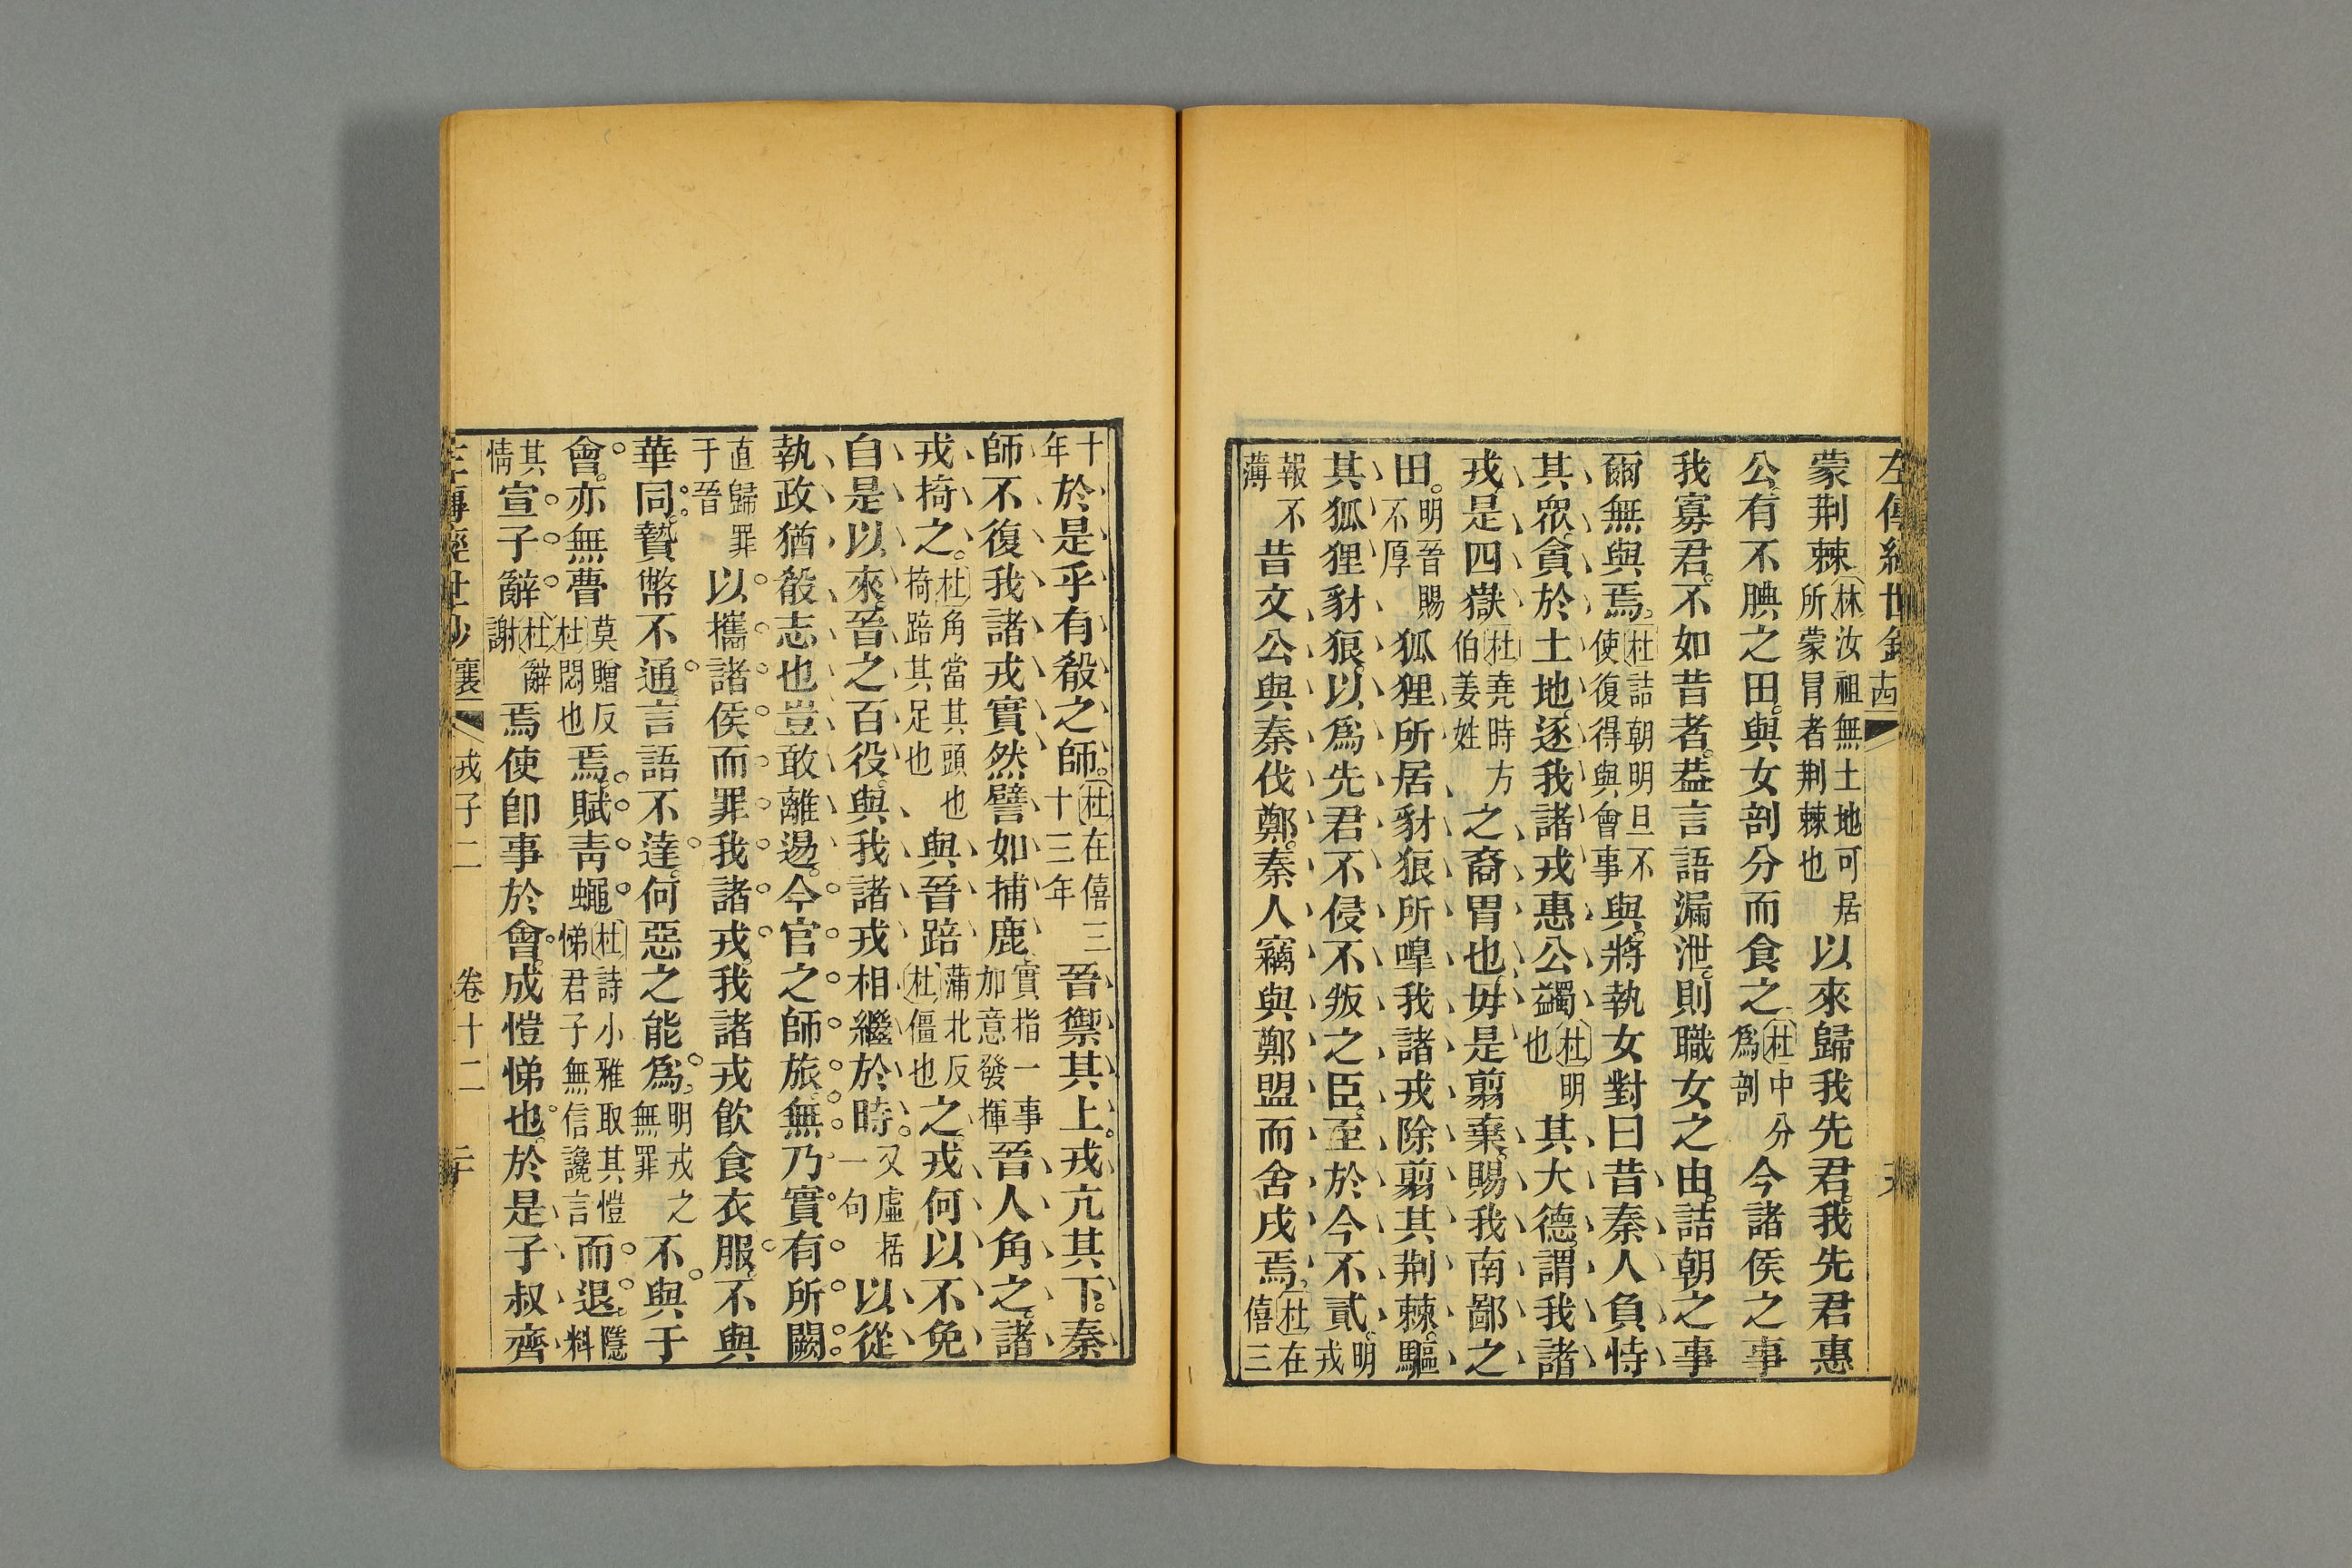 左傳經世鈔
蒙荆棘林汝祖無土地可居所蒙冐者荆棘也以來歸我先君我先君惠
公有不腆之田與女剖分而食之杜中分爲剖今諸侯之事
我寡君不如昔者葢言語漏泄則職女之由詰朝之事
爾無與焉杜詰朝明旦不使復得與會事與將執女對曰昔秦人負恃
其衆貪於土地逐我諸戎惠公蠲杜明也其大德謂我諸
戎是四嶽杜堯時方伯姜姓之裔胄也毋是翦棄賜我南鄙之
田明晉賜不厚狐狸所居豺狼所嘷我諸戎除翦其荆棘驅
其狐狸豺狼以爲先君不侵不叛之臣至於今不貳明戎
報不薄昔文公與秦伐鄭秦人竊與鄭盟而舍戍焉杜在僖三
十年於是乎有殽之師杜在僖三十三年晉禦其上戎亢其下秦
師不復我諸戎實然譬如捕鹿實指一事加意發揮晉人角之諸
戎掎之杜角當其頭也掎踣其足也與晉踣蒲北反杜僵也之戎何以不免
自是以來晉之百役與我諸戎相繼於時又虛括一句以從
執政猶殽志也豈敢離逷今官之師旅無乃實有所闕
直歸罪于晉以攜諸侯而罪我諸戎我諸戎飲食衣服不與
華同贄幣不通言語不達何惡之能爲明戎之無罪不與于
會亦無瞢莫贈反杜悶也焉賦靑蠅杜詩小雅取其愷悌君子無信讒言而退隱料
其情宣子辭杜辭謝焉使卽事於會成愷悌也於是子叔齊
左傳經世鈔 襄 戎子二 卷十二 二十